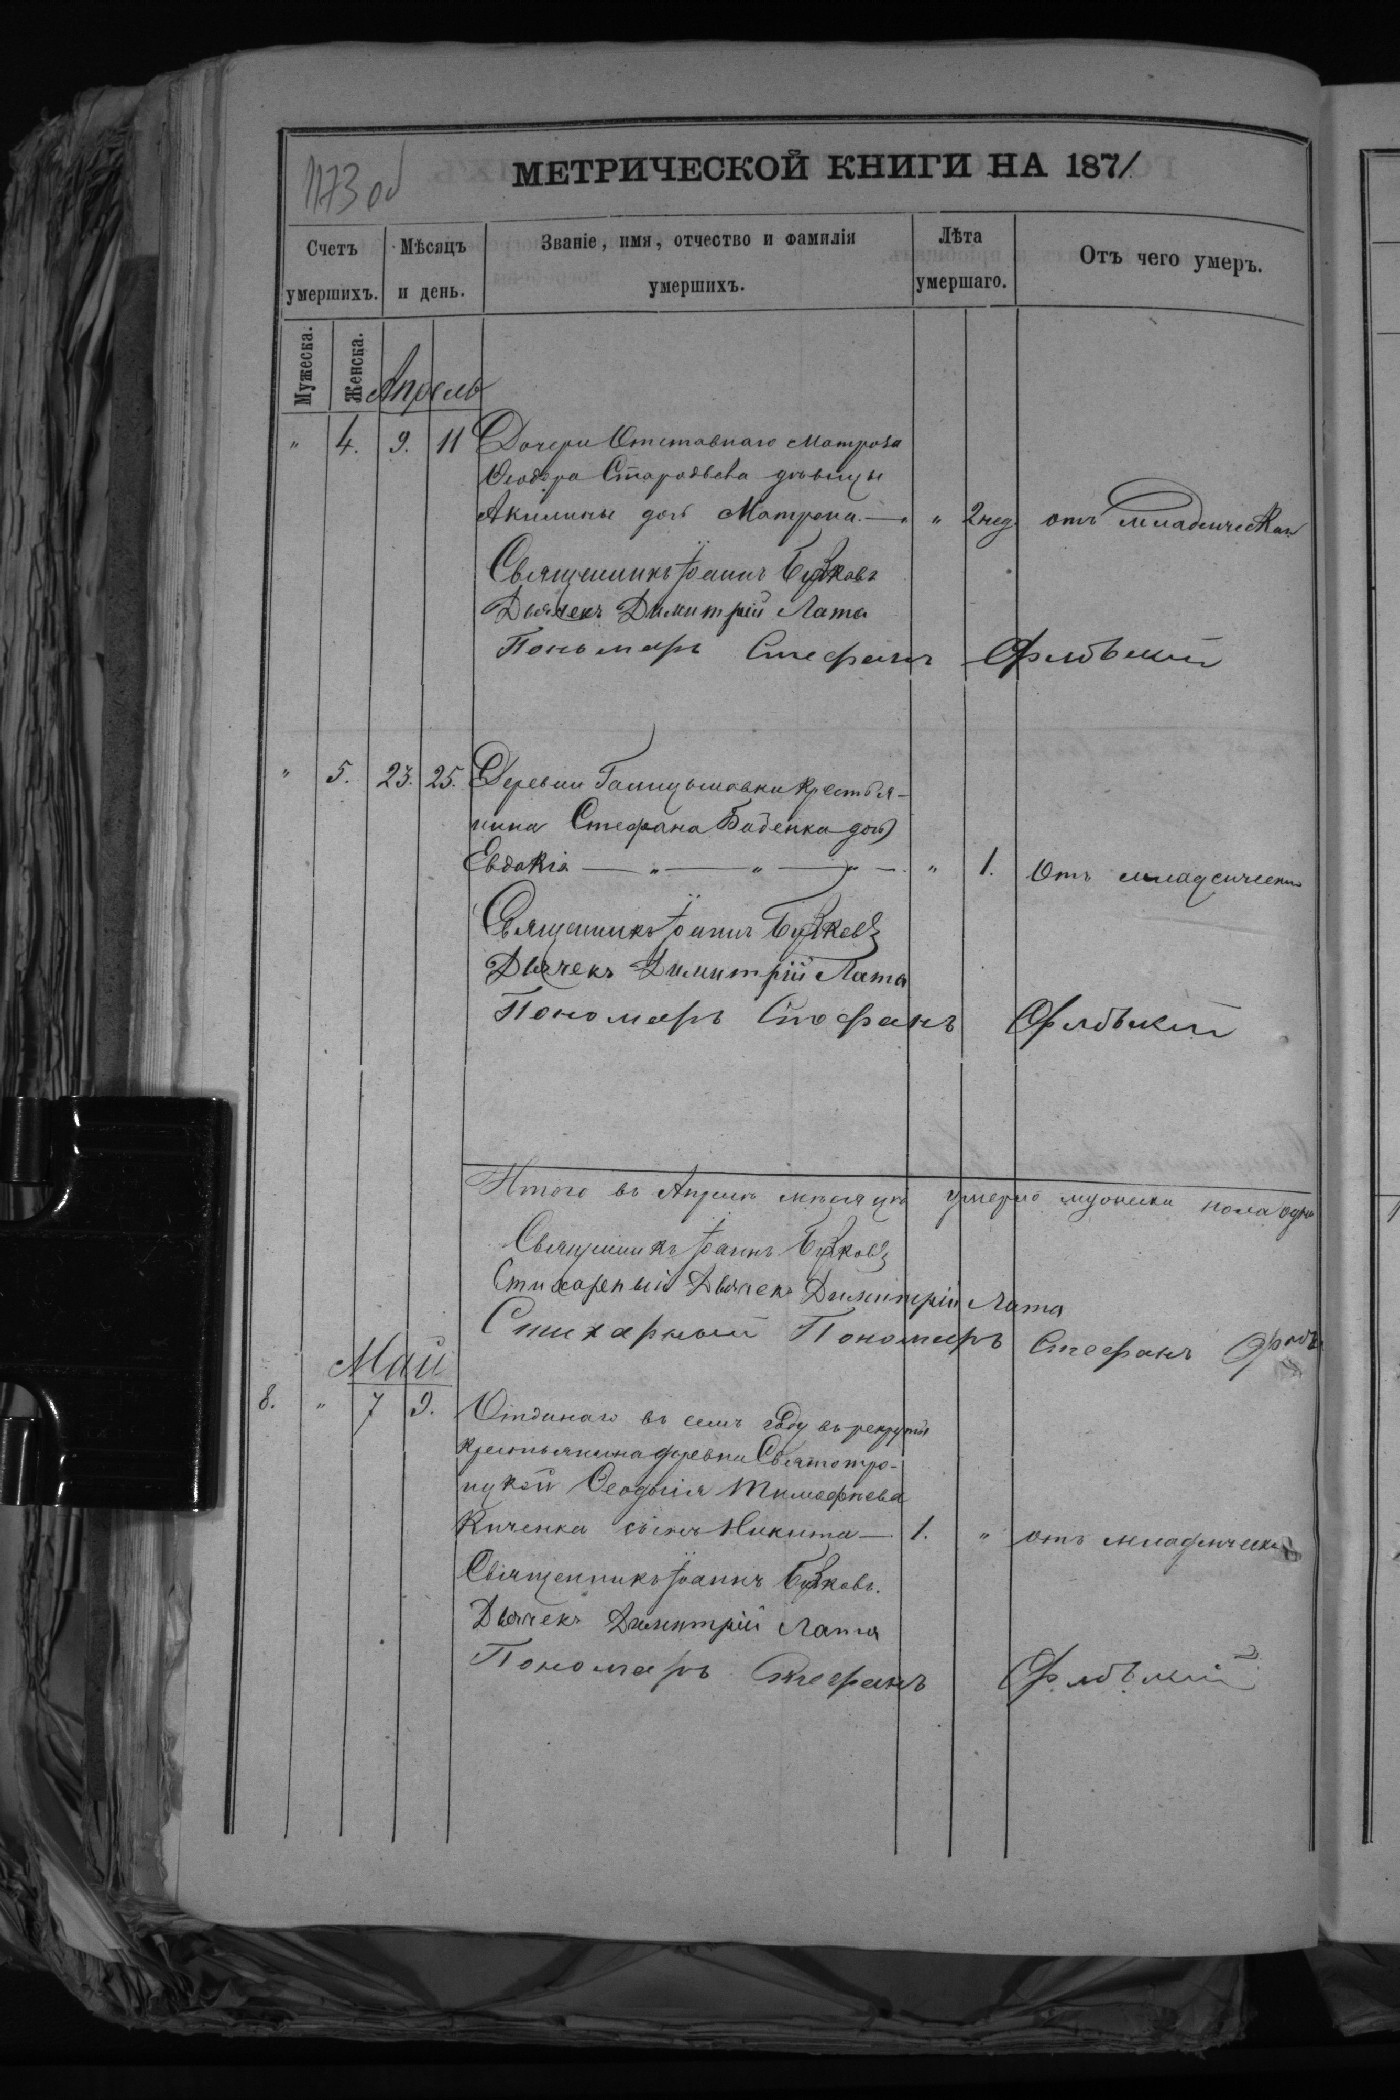 1173 об
МЕТРИЧЕСКОЙ КНИГИ НА 1871
Счетъ умершихъ.
Мѣсяцъ и день.
Званіе, имя, отчество и фамилія умершихъ.
Лѣта умершаго.
Отъ чего умеръ.
Мужеска.
Женска.
Апрель
" 4. 9. 11 Дочери Отставнаго матроза
Ѳеодора дѣвицы
Акилины дочь Матрона — " 2 нед отъ младенческой
Священникъ Іоаннъ
Дьячекъ Димитрій Лата
Пономарь Стефанъ
" 5. 23. 25. Деревни крестья-
нина Стефана Бабенка дочь
Евдокія — " — " — " 1. Отъ младенческой
Священникъ Іоаннъ
Дьячекъ Димитрій Лата
Пономарь Стефанъ
Итого въ Апрелѣ месяцѣ умерло мужеска пола одинъ
Священникъ Іоаннъ
Стихарный Дьячекъ Димитрій Лата
Стихарный Пономарь Стефанъ
Май
8. " 7 9. Отданаго въ семъ году въ рекруты
крестьянина деревни Святотро-
ицкой Ѳеодосія Тимофѣева
Киченка сынъ Никита — 1. " отъ младенческой
Священникъ Іоаннъ
Дьячекъ Димитрій Лата
Пономарь Стефанъ